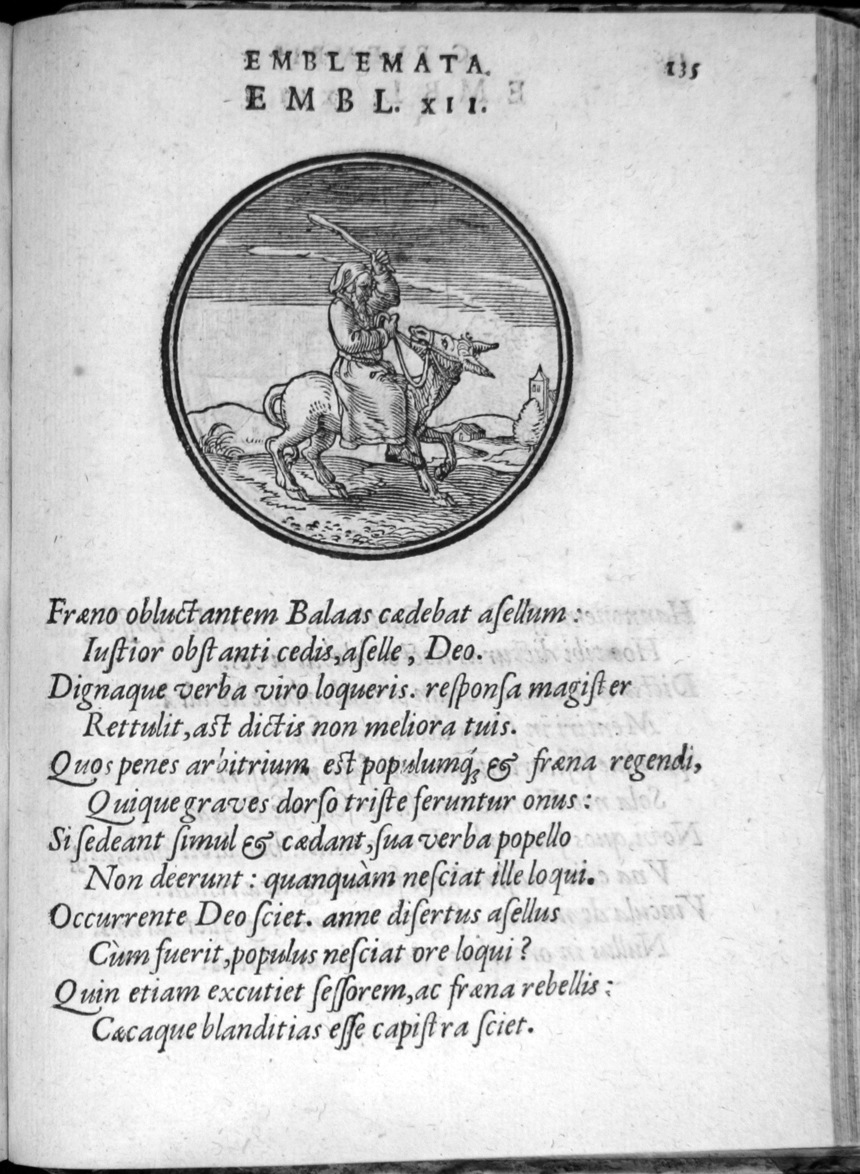 EMBLEMATA.
135
EMBL. XII.
Fræno obluctantem Balaas cædebat aſellum:
Iuſtior obſtanti cedis, aſelle, Deo.
Dignaque verba viro loqueris. reſponſa magiſter
Rettulit, aſt dictis non meliora tuis.
Quos penes arbitrium eſt populumq́; & fræna regendi,
Quique graves dorſo triſte feruntur onus:
Si ſedeant ſimul & cædant, ſua verba popello
Non deerunt: quanquàm neſciat ille loqui.
Occurrente Deo ſciet. anne diſertus aſellus
Cùm fuerit, populus neſciat ore loqui?
Quin etiam excutiet ſeſſorem, ac fræna rebellis:
Cæcaque blanditias eſſe capiſtra ſciet.